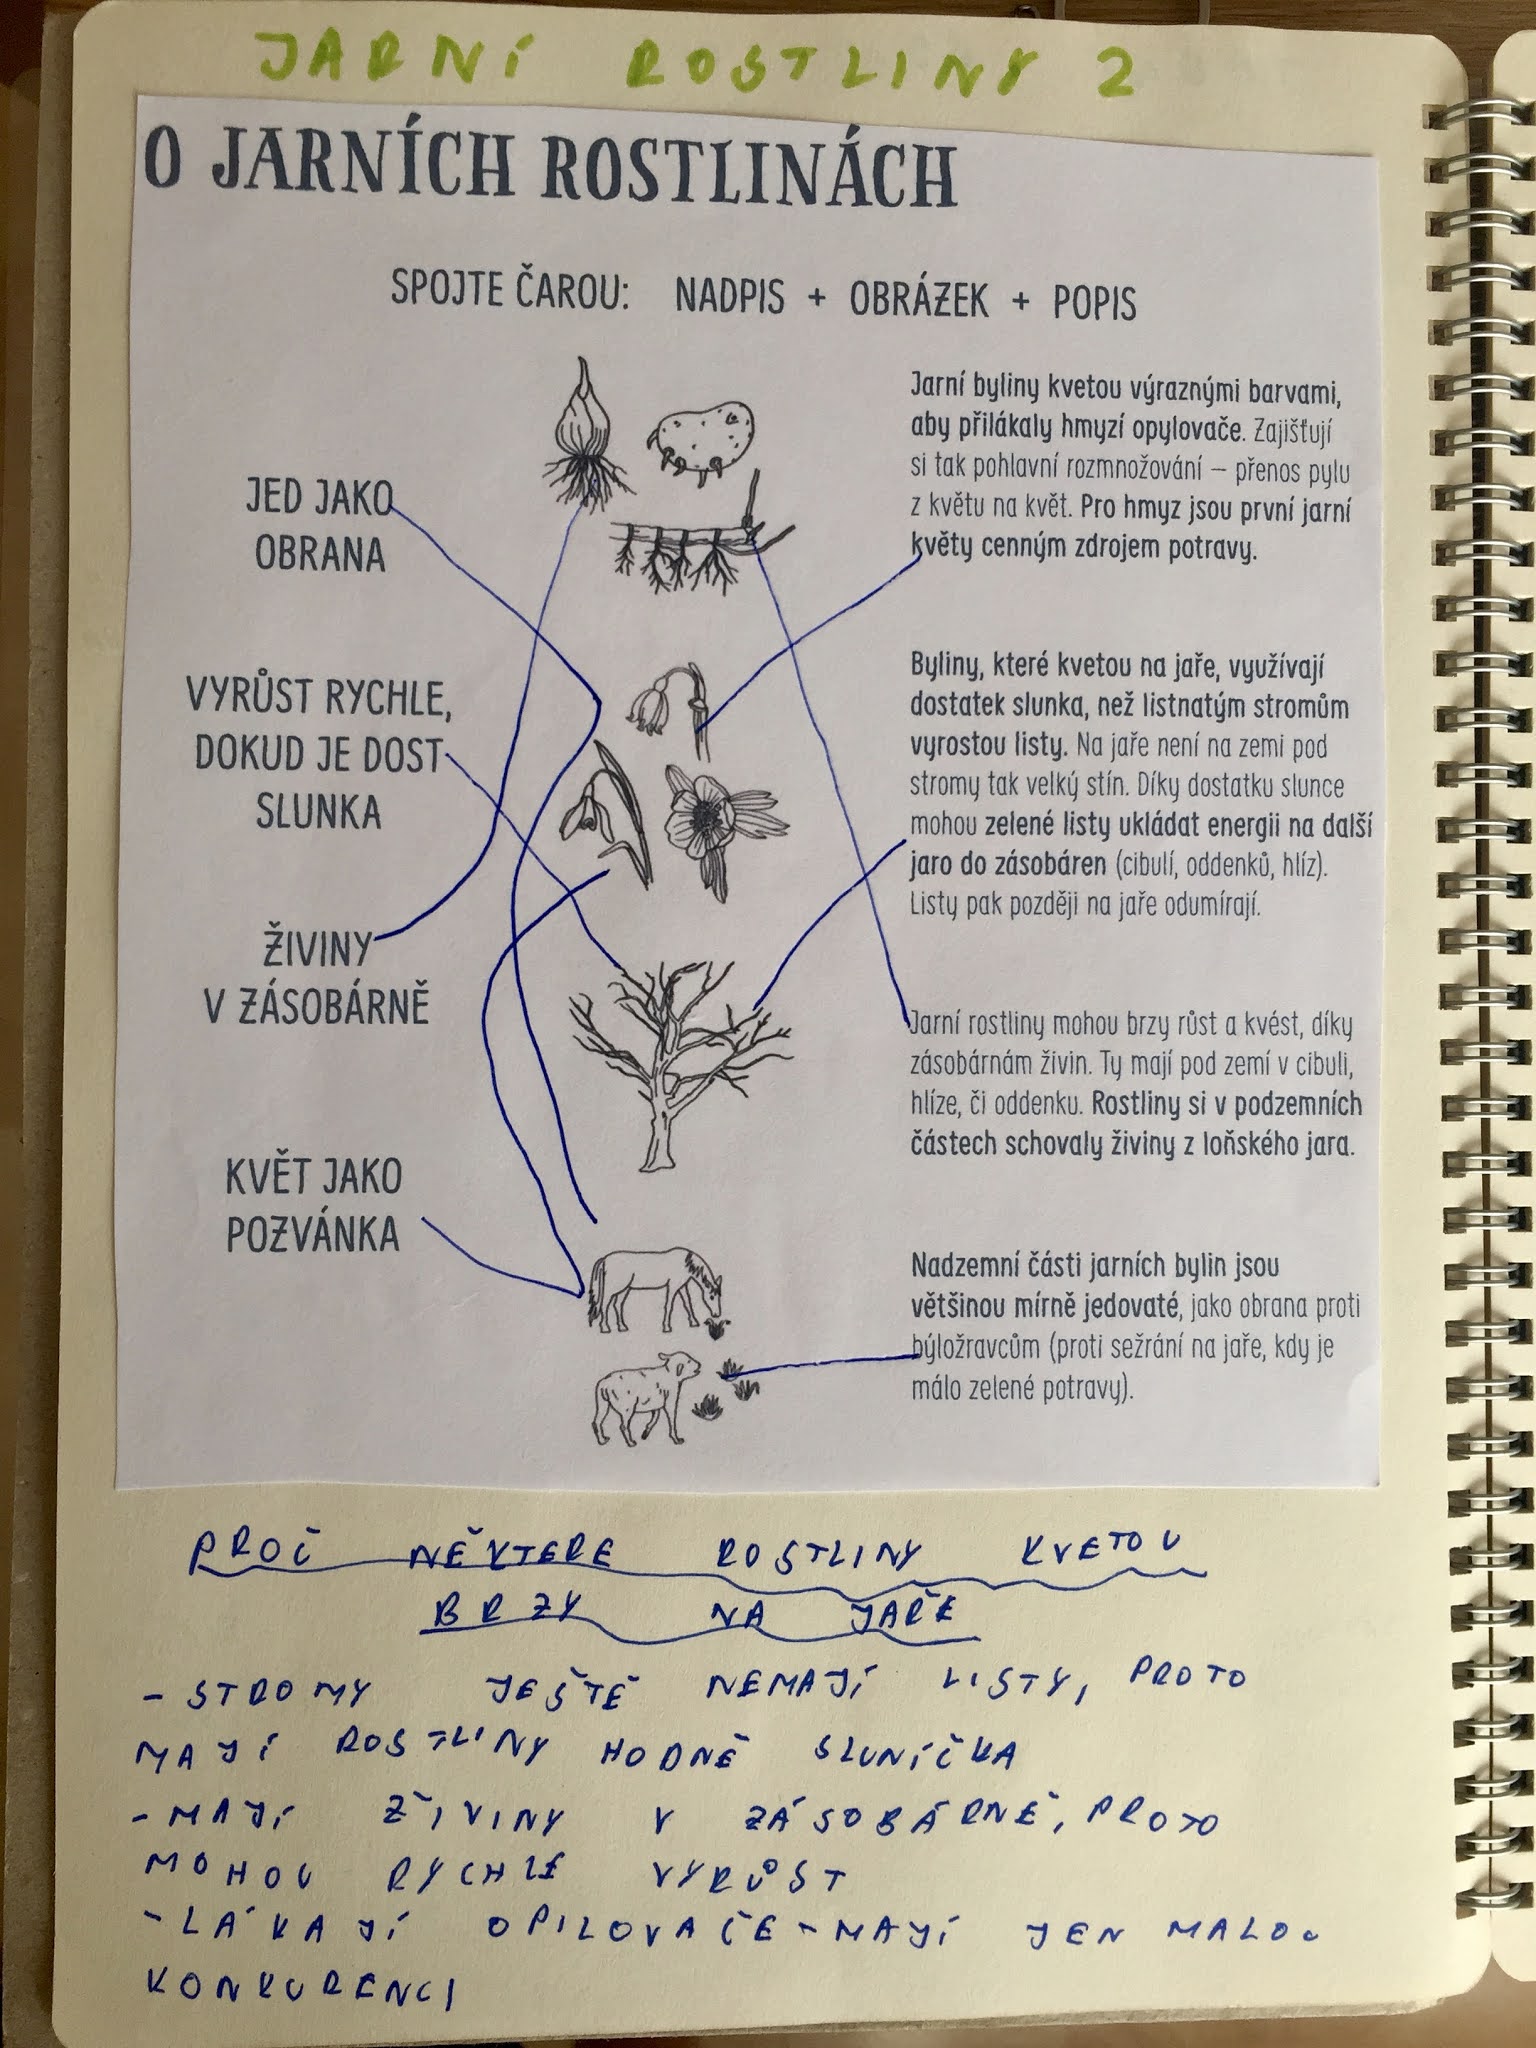 JARNÍ ROSTLINY 2
O JARNÍCH ROSTLINÁCH
SPOJTE ČAROU: NADPIS + OBRÁZEK + POPIS
JED JAKO
OBRANA
VYRŮST RYCHLE,
DOKUD JE DOST
SLUNKA
ŽIVINY
V ZÁSOBÁRNĚ
KVĚT JAKO
POZVÁNKA
Jarní byliny kvetou výraznými barvami,
aby přilákaly hmyzí opylovače. Zajišťují
si tak pohlavní rozmnožování – přenos pylu
z květu na květ. Pro hmyz jsou první jarní
květy cenným zdrojem potravy.
Byliny, které kvetou na jaře, využívají
dostatek slunka, než listnatým stromům
vyrostou listy. Na jaře není na zemi pod
stromy tak velký stín. Díky dostatku slunce
mohou zelené listy ukládat energii na další
jaro do zásobáren (cibulí, oddenků, hlíz).
Listy pak později na jaře odumírají.
Jarní rostliny mohou brzy růst a kvést, díky
zásobárnám živin. Ty mají pod zemí v cibuli,
hlíze, či oddenku. Rostliny si v podzemních
částech schovaly živiny z loňského jara.
Nadzemní části jarních bylin jsou
většinou mírně jedovaté, jako obrana proti
býložravcům (proti sežrání na jaře, kdy je
málo zelené potravy).
PROČ NĚKTERE ROSTLINY KVETOU
BRZY NA JAŘE
- STROMY JEŠTĚ NEMAJÍ LISTY, PROTO
MAJÍ ROSTLINY HODNĚ SLUNÍČKA
- MAJÍ ŽIVINY V ZÁSOBÁRNĚ, PROTO
MOHOU RYCHLE VYRŮST
- LÁKAJÍ OPILOVAČE - MAJÍ JEN MALOU
KONKURENCI